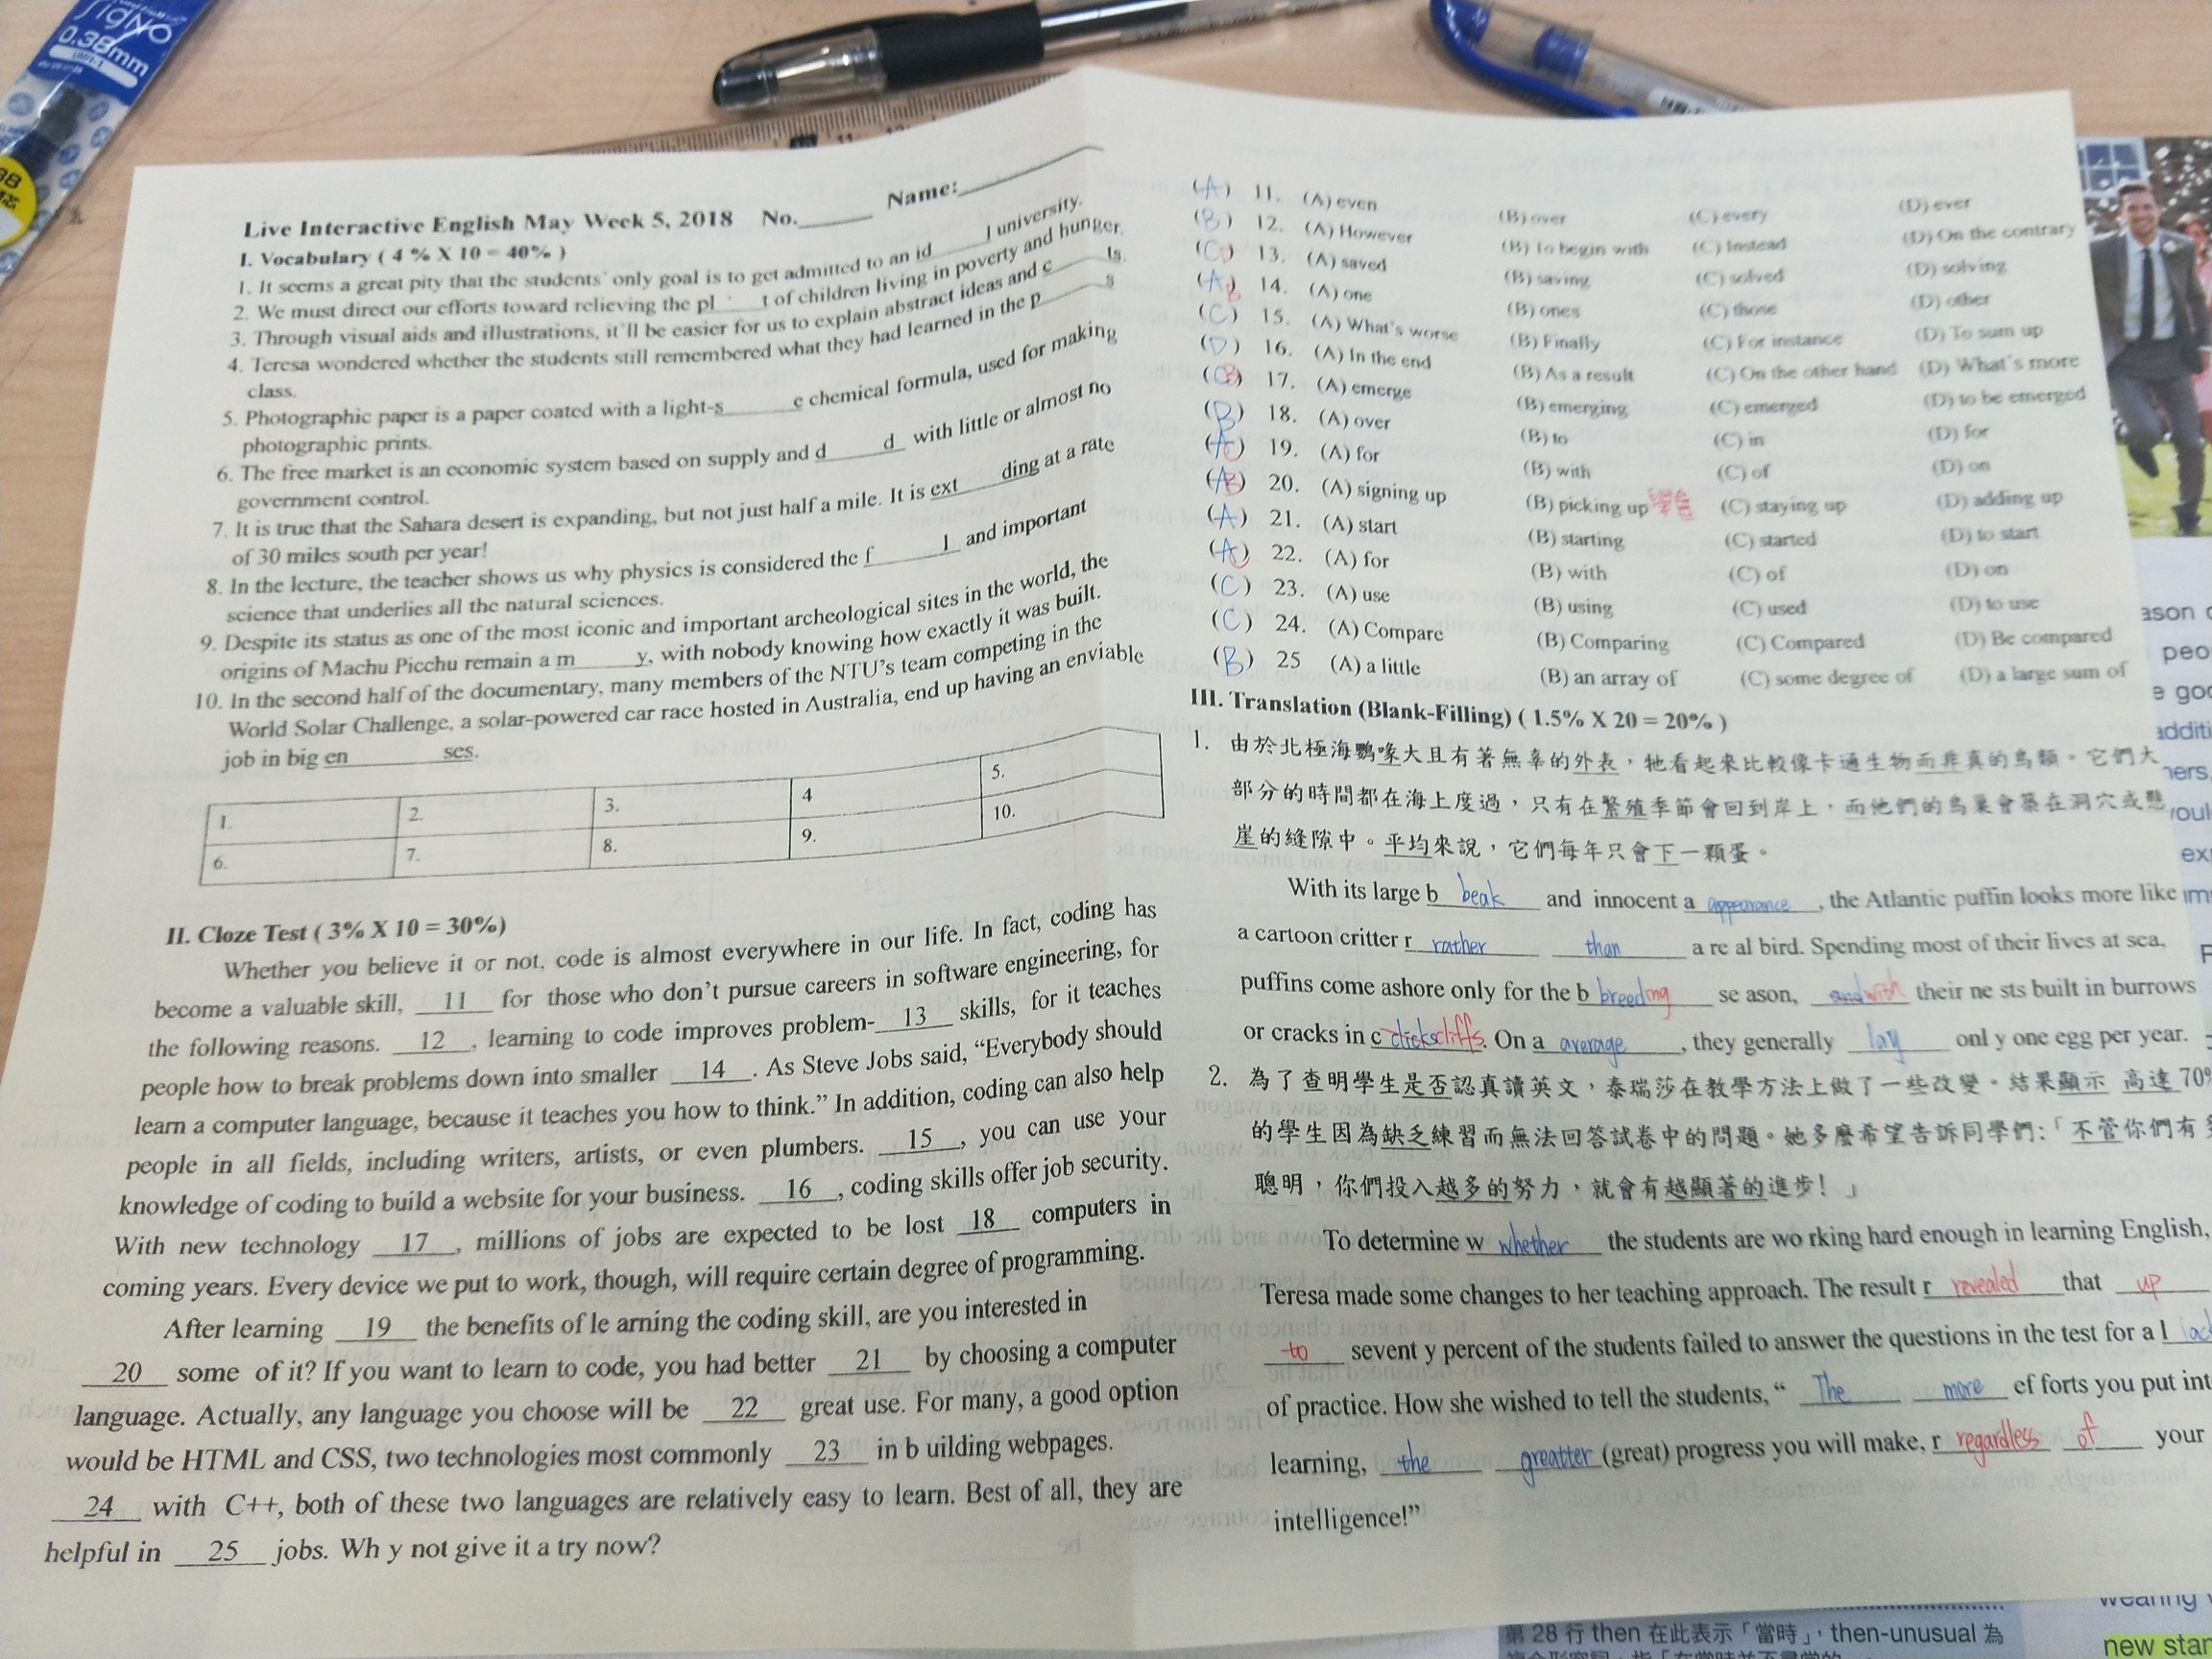 SigNO
0.38mm
Live Interactive English May Week 5, 2018 No.______ Name:______
I. Vocabulary ( 4 % X 10 = 40% )
1. It seems a great pity that the students' only goal is to get admitted to an id______l university.
2. We must direct our efforts toward relieving the pl____t of children living in poverty and hunger.
3. Through visual aids and illustrations, it'll be easier for us to explain abstract ideas and c______ls.
4. Teresa wondered whether the students still remembered what they had learned in the p______s
class.
5. Photographic paper is a paper coated with a light-s______e chemical formula, used for making
photographic prints.
6. The free market is an economic system based on supply and d______d with little or almost no
government control.
7. It is true that the Sahara desert is expanding, but not just half a mile. It is ext____ding at a rate
of 30 miles south per year!
8. In the lecture, the teacher shows us why physics is considered the f______l and important
science that underlies all the natural sciences.
9. Despite its status as one of the most iconic and important archeological sites in the world, the
origins of Machu Picchu remain a m______y, with nobody knowing how exactly it was built.
10. In the second half of the documentary, many members of the NTU's team competing in the
World Solar Challenge, a solar-powered car race hosted in Australia, end up having an enviable
job in big en________ses.
1. 2. 3. 4 5.
6. 7. 8. 9. 10.
II. Cloze Test ( 3% X 10 = 30%)
Whether you believe it or not, code is almost everywhere in our life. In fact, coding has
become a valuable skill, 11 for those who don't pursue careers in software engineering, for
the following reasons. 12 , learning to code improves problem- 13 skills, for it teaches
people how to break problems down into smaller 14 . As Steve Jobs said, "Everybody should
learn a computer language, because it teaches you how to think." In addition, coding can also help
people in all fields, including writers, artists, or even plumbers. 15 , you can use your
knowledge of coding to build a website for your business. 16 , coding skills offer job security.
With new technology 17 , millions of jobs are expected to be lost 18 computers in
coming years. Every device we put to work, though, will require certain degree of programming.
After learning 19 the benefits of le arning the coding skill, are you interested in
20 some of it? If you want to learn to code, you had better 21 by choosing a computer
language. Actually, any language you choose will be 22 great use. For many, a good option
would be HTML and CSS, two technologies most commonly 23 in b uilding webpages.
24 with C++, both of these two languages are relatively easy to learn. Best of all, they are
helpful in 25 jobs. Wh y not give it a try now?
(A) 11. (A) even (B) over (C) every (D) ever
(B) 12. (A) However (B) To begin with (C) Instead (D) On the contrary
(CD) 13. (A) saved (B) saving (C) solved (D) solving
(AB) 14. (A) one (B) ones (C) those (D) other
(C) 15. (A) What's worse (B) Finally (C) For instance (D) To sum up
(D) 16. (A) In the end (B) As a result (C) On the other hand (D) What's more
(CB) 17. (A) emerge (B) emerging (C) emerged (D) to be emerged
(B) 18. (A) over (B) to (C) in (D) for
(AC) 19. (A) for (B) with (C) of (D) on
(AB) 20. (A) signing up (B) picking up (C) staying up (D) adding up
(A) 21. (A) start (B) starting (C) started (D) to start
(AC) 22. (A) for (B) with (C) of (D) on
(C) 23. (A) use (B) using (C) used (D) to use
(C) 24. (A) Compare (B) Comparing (C) Compared (D) Be compared
(B) 25 (A) a little (B) an array of (C) some degree of (D) a large sum of
III. Translation (Blank-Filling) ( 1.5% X 20 = 20% )
1. 由於北極海鸚喙大且有著無辜的外表，牠看起來比較像卡通生物而非真的鳥類。它們大
部分的時間都在海上度過，只有在繁殖季節會回到岸上，而他們的鳥巢會築在洞穴或懸
崖的縫隙中。平均來說，它們每年只會下一顆蛋。
With its large b beak and innocent a appearance , the Atlantic puffin looks more like
a cartoon critter r rather than a re al bird. Spending most of their lives at sea,
puffins come ashore only for the b breeding se ason, and with their ne sts built in burrows
or cracks in c clicks cliffs. On a average , they generally lay onl y one egg per year.
2. 為了查明學生是否認真讀英文，泰瑞莎在教學方法上做了一些改變。結果顯示 高達 70%
的學生因為缺乏練習而無法回答試卷中的問題。她多麼希望告訴同學們：「不管你們有多
聰明，你們投入越多的努力，就會有越顯著的進步！」
To determine w whether the students are wo rking hard enough in learning English,
Teresa made some changes to her teaching approach. The result r revealed that up
to sevent y percent of the students failed to answer the questions in the test for a l lac
of practice. How she wished to tell the students, " The more ef forts you put int
learning, the greatter (great) progress you will make, r regardless of your
intelligence!"
第 28 行 then 在此表示「當時」，then-unusual 為
ason
peo
e go
additi
hers,
oul
ex
im
wearing
new star